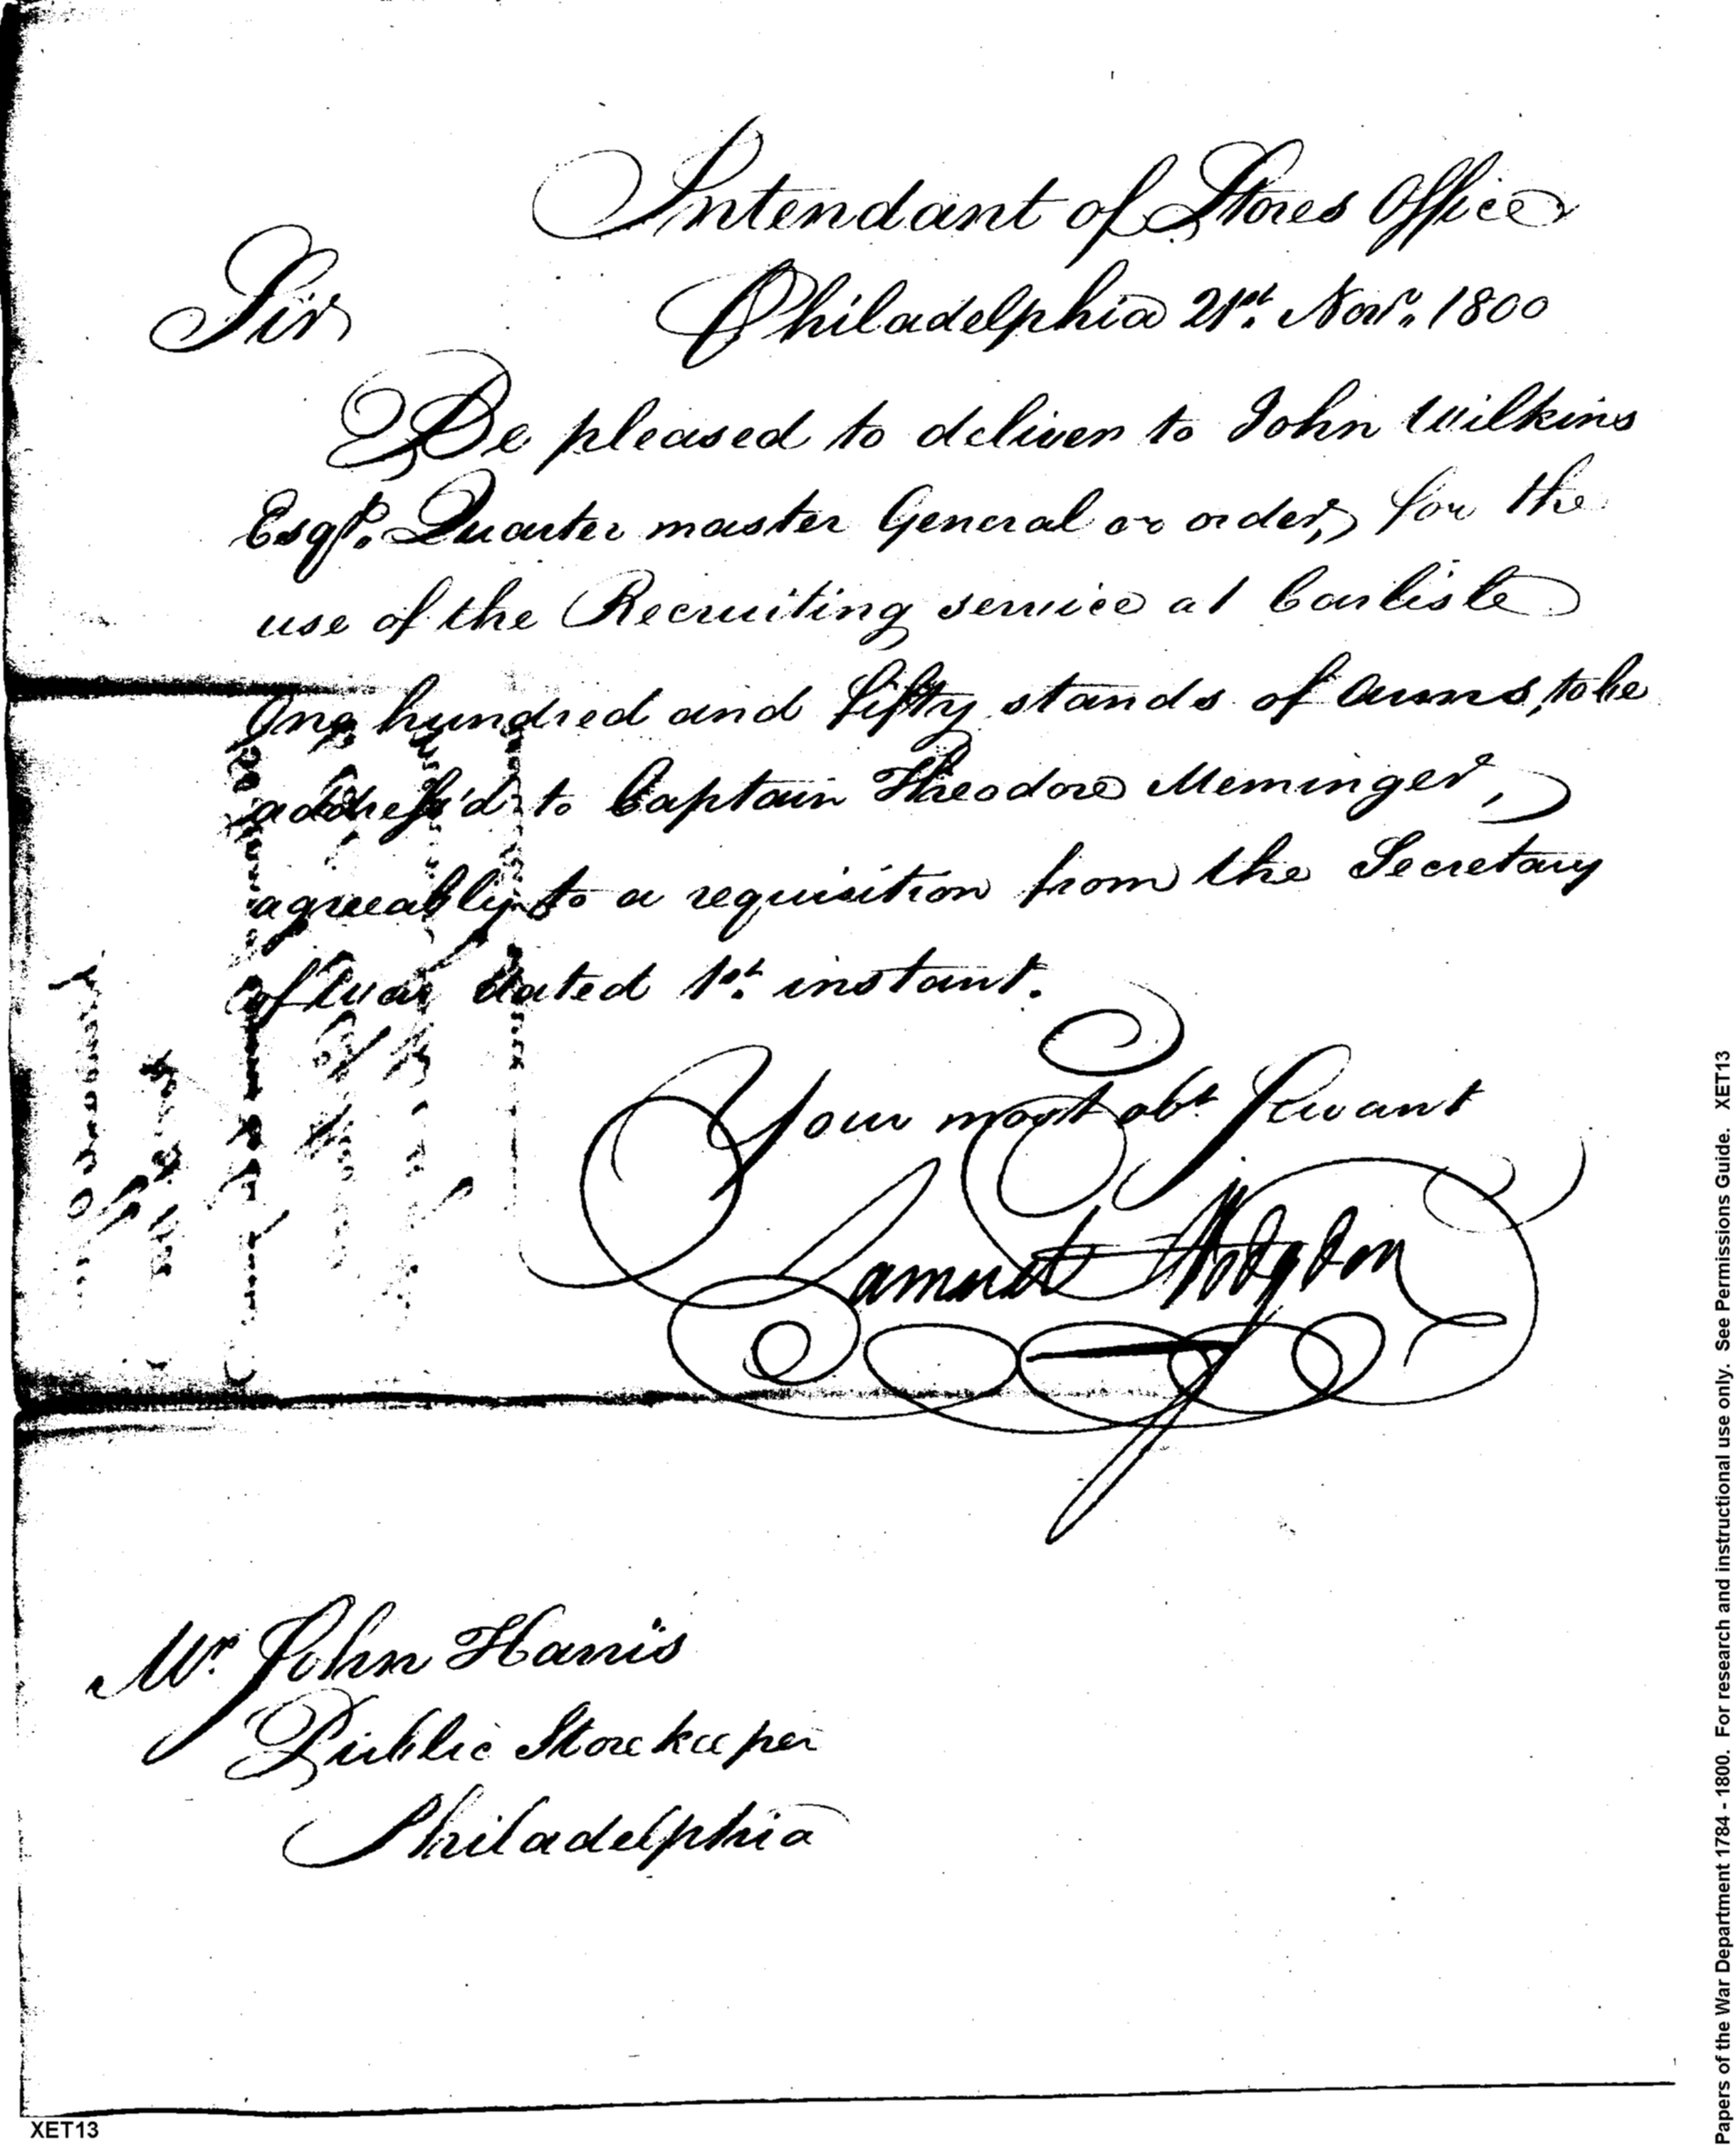 Intendant of Stores Office
Sir Philadelphia 21st. Novr. 1800
Be pleased to deliver to John Wilkins
Esqr. Quarter master General or order, for the
use of the Recruiting service at Carlisle
One hundred and fifty stands of Arms, to be
address'd to Captain Theodore Meminger,
agreeably to a requisition from the Secretary
of War dated 1st. instant.
Your most obt Servant
Samuel Hodgdon
Mr. John Harris
Public Storekeeper
Philadelphia
XET13
Papers of the War Department 1784 - 1800. For research and instructional use only. See Permissions Guide. XET13